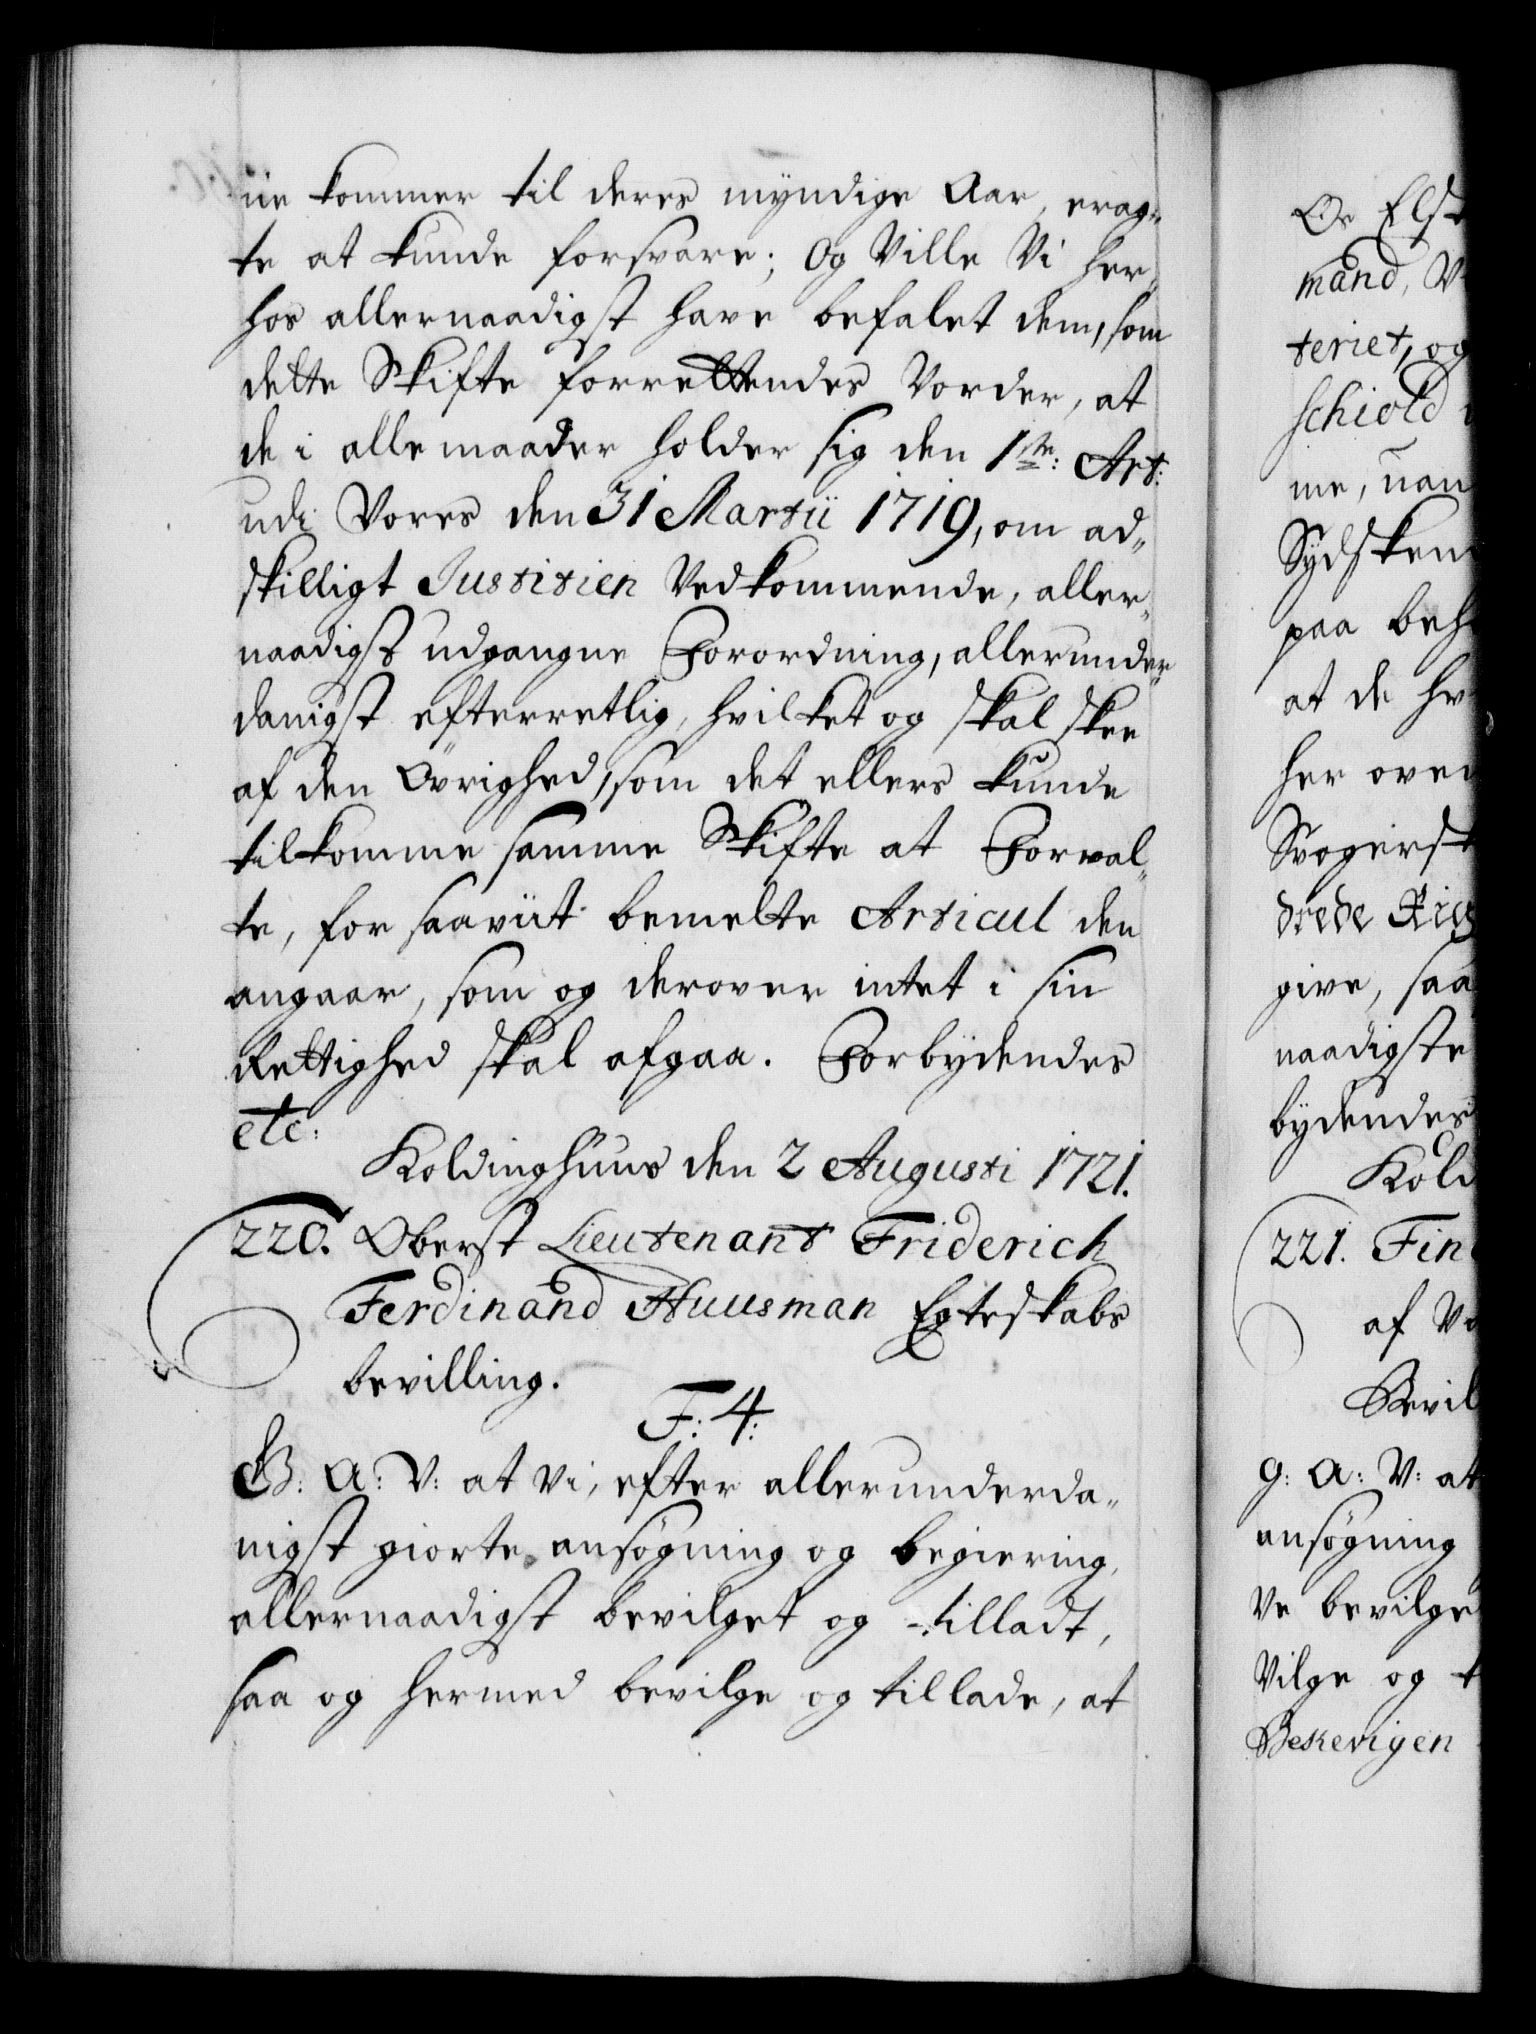 ne kommer til deres myndige Aar, erag„
te at kunde forsvare; Og Ville Vi her„
hos allernaadigst have befalet dem, som
dette Skifte forrettendes Vorder, at
de i alle maader holder sig den 1ste: Art:
udi Vores den 31 Martii 1719, om ad„
skilligt Justitien Vedkommende, aller„
naadigst udgangne Forordning, allerunder
danigst efterretlig, hvilket og skal skee
af den Övrighed, som det ellers kunde
tilkomme samme Skifte at Forval„
te, for saaviit bemelte Articul den
angaar, som og derover intet i sin
Rettighed skal afgaa. Forbydendes
etc:
Koldinghuus den 2 Augusti 1721.
220. Oberst Lieutenant Friderich
Ferdinand Huusman Egteskabs
bevilling.
F: 4:
G: A: V: at Vi, efter allerunderda„
nigst giorte ansøgning og begiering,
allernaadigst bevilget og tilladt,
saa og hermed bevilge og tillade, at
Os Elst
mand, V
teriet, og
schiold
me, nan
Sydsken
paa beh
at de hv
her oven
Svogerst
drede Rig
give, saa
naadigste
bydendes
Kold
221. Fin
af Vo
Bevil
G: A: V: at
ansøgning
Ve bevilge
Vilge og t
Beskevigen